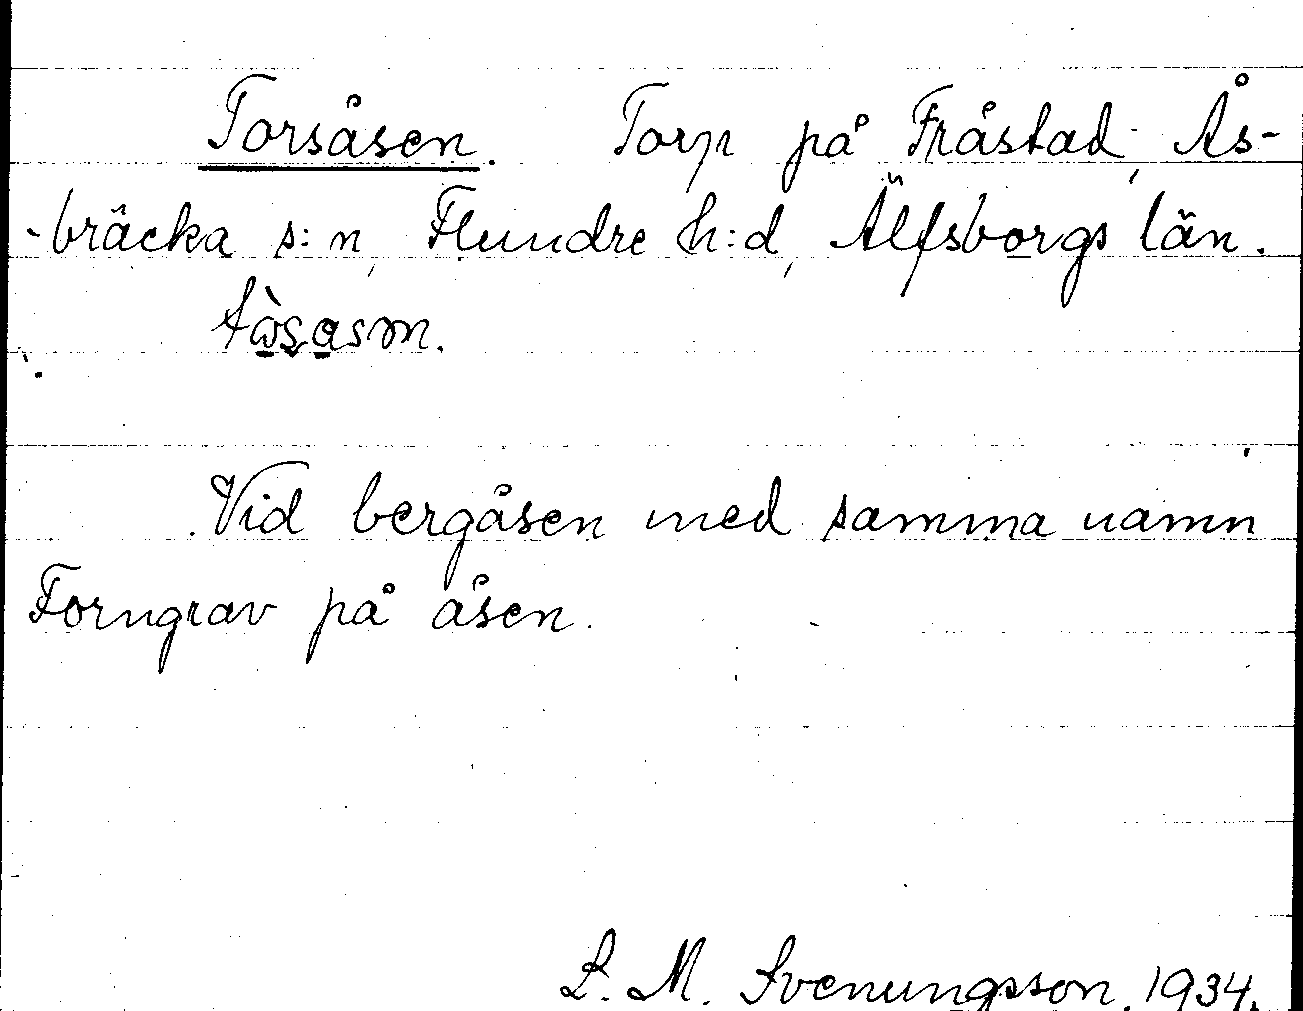 Torsåsen. Torp på Fråstad, Ås-
-bräcka s:n, Flundre h:d, Älfsborgs län.
Vid bergåsen med samma namn
Forngrav på åsen.
L. M. Svenungsson. 1934.